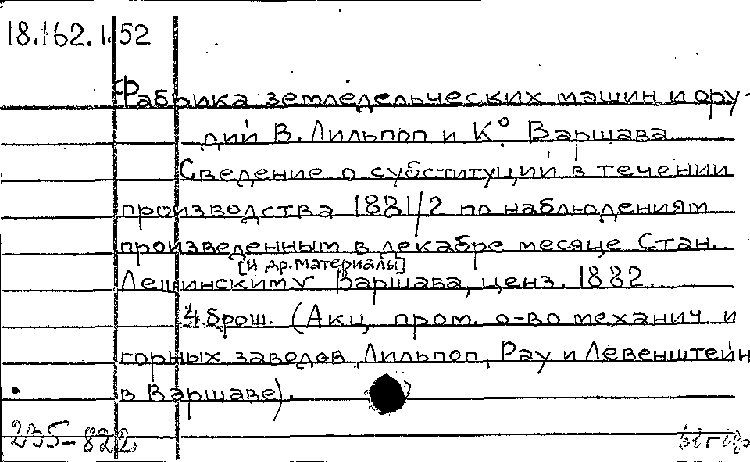 18.162.1.52
Фабрика земледельческих машин и ору-
дий В. Лильпоп и К° Варшава
Сведение о субституции в течении
производства 1881/2 по наблюдениям
произведенным в декабре месяце Стан.
[и др. материалы]
Лещинским Варшава, ценз. 1882.
4 брош. (Акц. пром. о-во механич и
горных заводов Лильпоп, Рау и Левенштейн
в Варшаве).
235-822